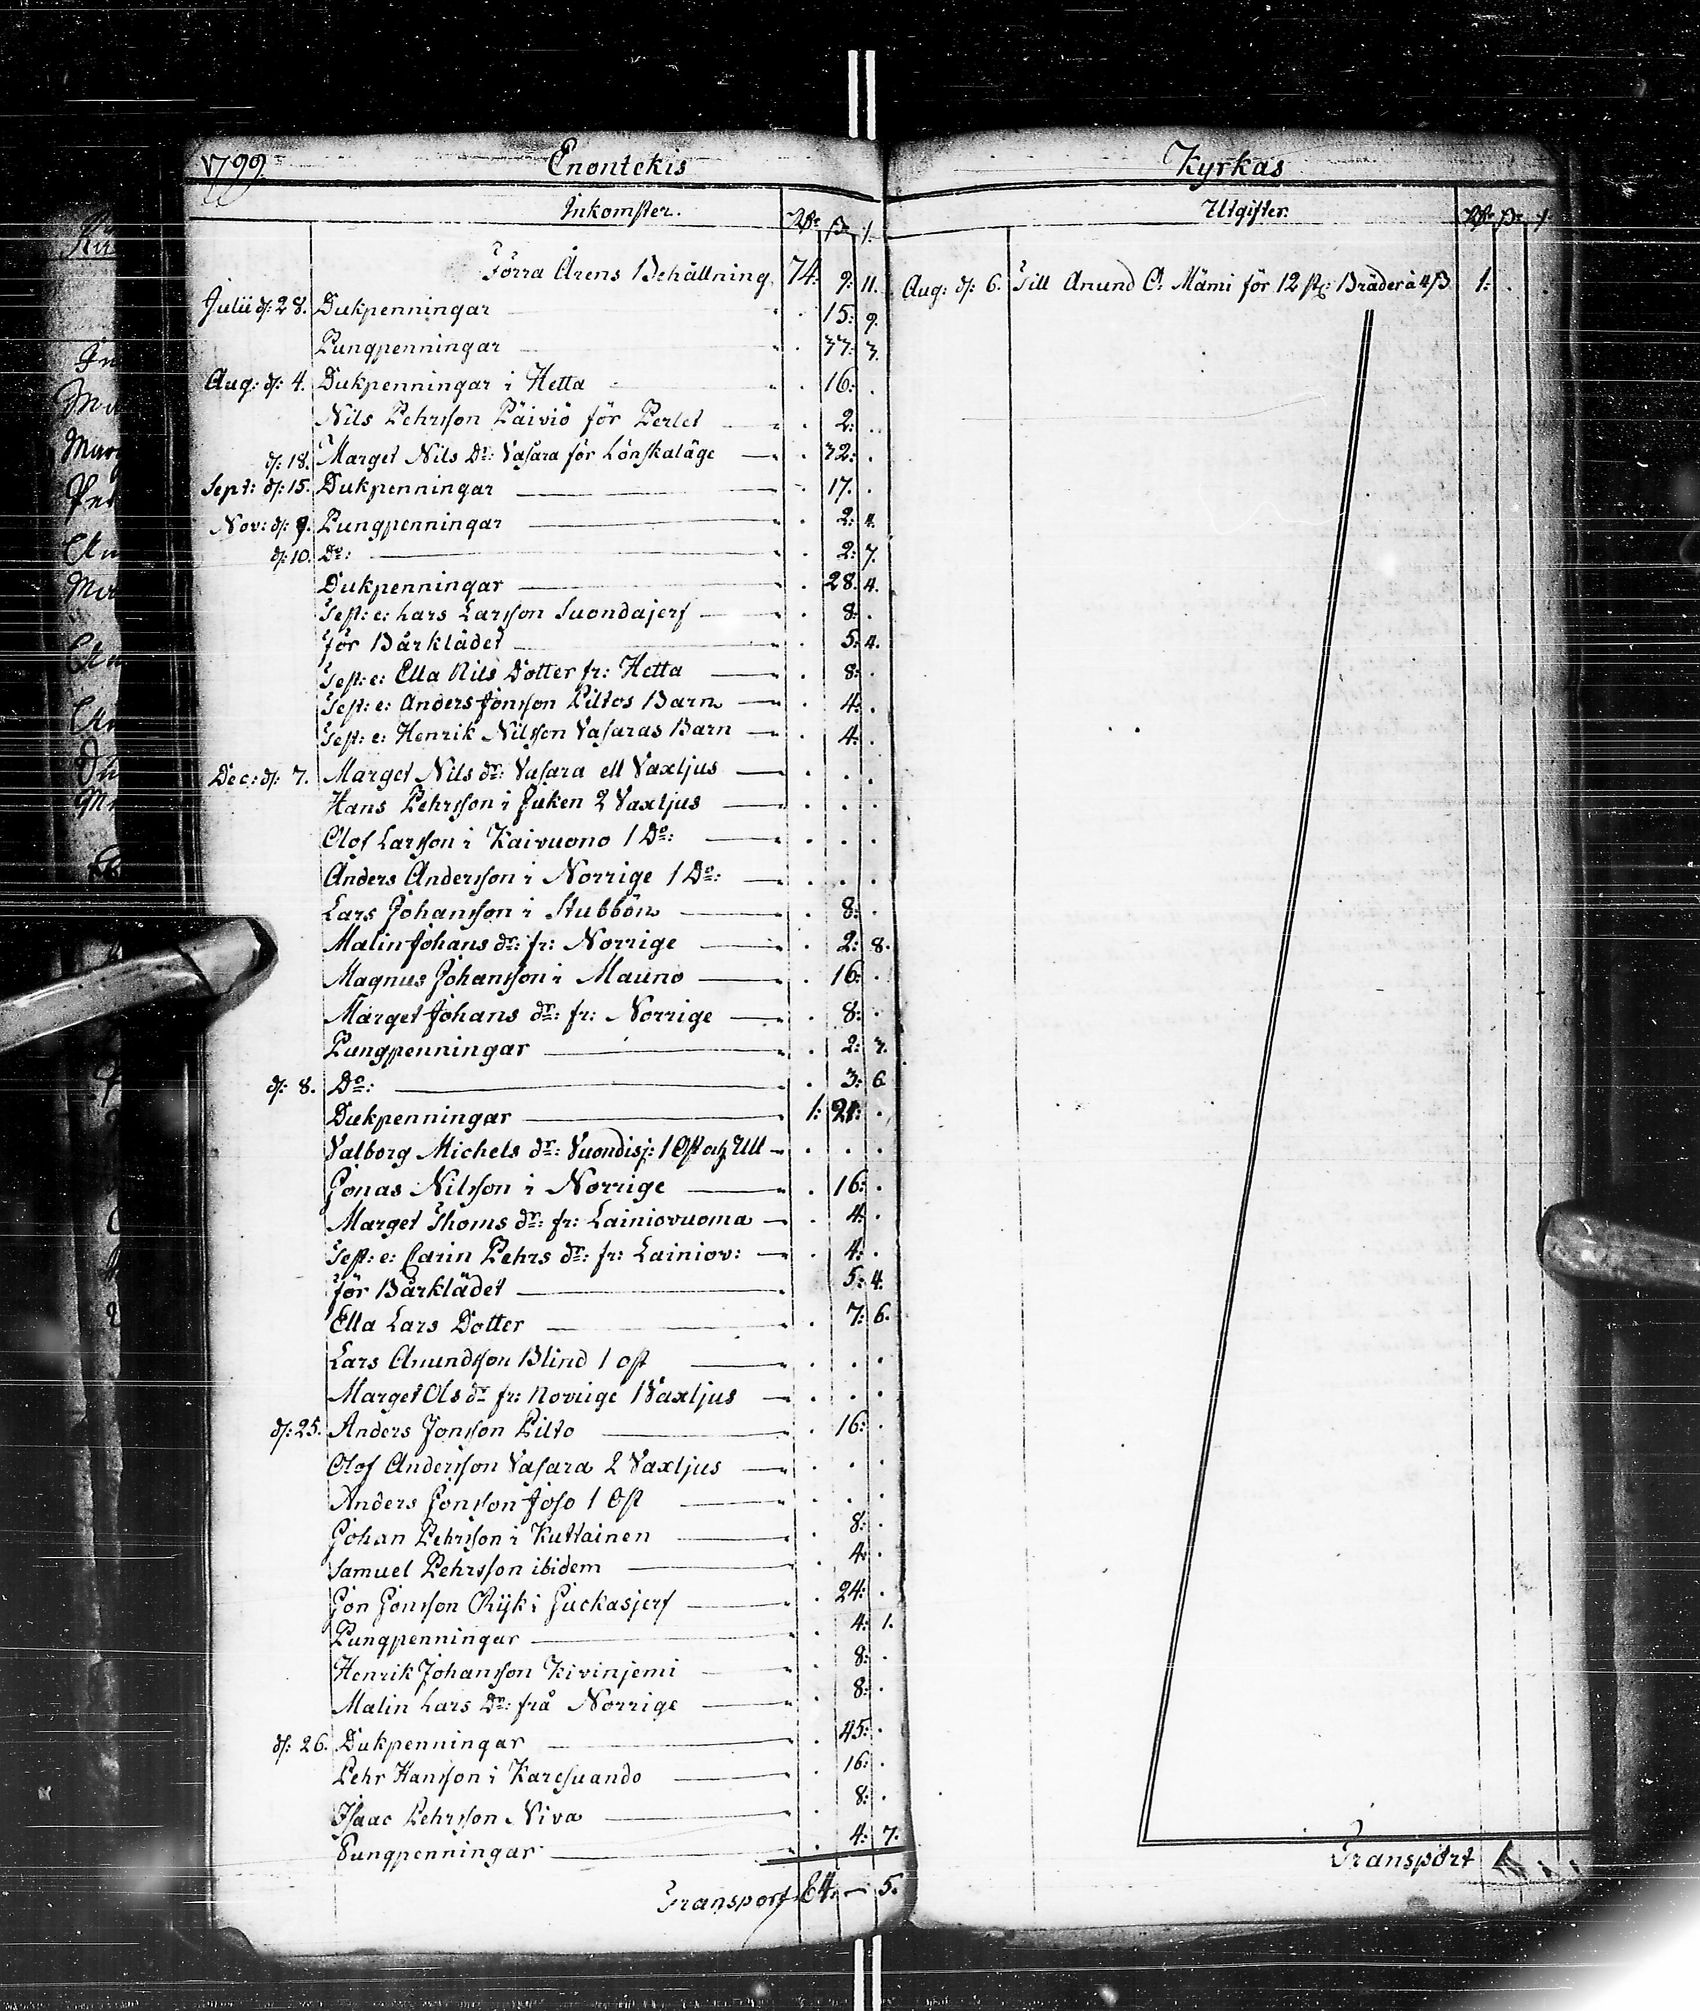 1799 Enontekis
Inkomster. Rdr ß r.
Förra Årens Behållning 74: 9: 11.
Julii d: 28. Dukpenningar 15: 9.
Pungpenningar 37: 3.
Aug: d: 4. Dukpenningar i Hetta 16:
Nils Pehrsson Päiviö för Perlet 2:
d: 18. Marget Nils Dr: Vasara för Lönskaläge 32:
Sept: d: 15. Dukpenningar 17.
Nov: d: 9. Pungpenningar 2: 4.
d: 10. Do: 2: 7.
Dukpenningar 28. 4.
Test: e: Lars Larsson Suondajerf 8:
för Bårklädet 5: 4.
Test: e: Ella Nils Dotter fr: Hetta 8:
Test: e: Anders Jönsson Piltos Barn 4:
Test: e: Henrik Nilsson Vasaras Barn 4:
Dec: d: 7. Marget Nils dr: Vasara ett Vaxljus
Hans Pehrsson i Juken 2 Vaxljus
Olof Larsson i Kaivuono 1 Do:
Anders Andersson i Norrige 1 Do:
Lars Johansson i Stubbön 8:
Malin Johans dr: fr: Norrige 2: 8.
Magnus Johansson i Mauno 16:
Marget Johans dr: fr: Norrige 8:
Pungpenningar 2: 3.
d: 8. Do: 3: 6
Dukpenningar 1: 21:
Valborg Michels dr: Vuondisj: 1 Ost och Ull
Jonas Nilsson i Norrige 16:
Marget Thoms dr: fr: Lainiovuoma 4:
Test: e: Carin Pehrs dr: fr: Lainiov: 4:
för Bårklädet 5: 4.
Ella Lars Dotter 7: 6.
Lars Anundsson Blind 1 ost
Marget Ols dr fr: Norrige 1 Vaxljus
d: 25. Anders Jonsson Pilto 16:
Olof Andersson Vasara 2 Vaxljus
Anders Jonsson Joso 1 Ost
Johan Pehrsson i Kuttainen 8:
Samuel Pehrsson ibidem 4:
Jon Jonsson Rijk i Juckasjerf 24:
Pungpenningar 4: 1.
Henrik Johansson Kivinjemi 8:
Malin Lars Dr: frå Norrige 8:
d: 26. Dukpenningar 45:
Pehr Hansson i Karesuando 16:
Isaac Pehrsson Niva 8:
Pungpenningar 4: 7.
Transport 84. — 5.
Kyrkas
Utgifter. Rdr ß r
Aug: d: 6. Till Anund O: Mämi för 12 st: Bräder à 4 ß 1:
Transport